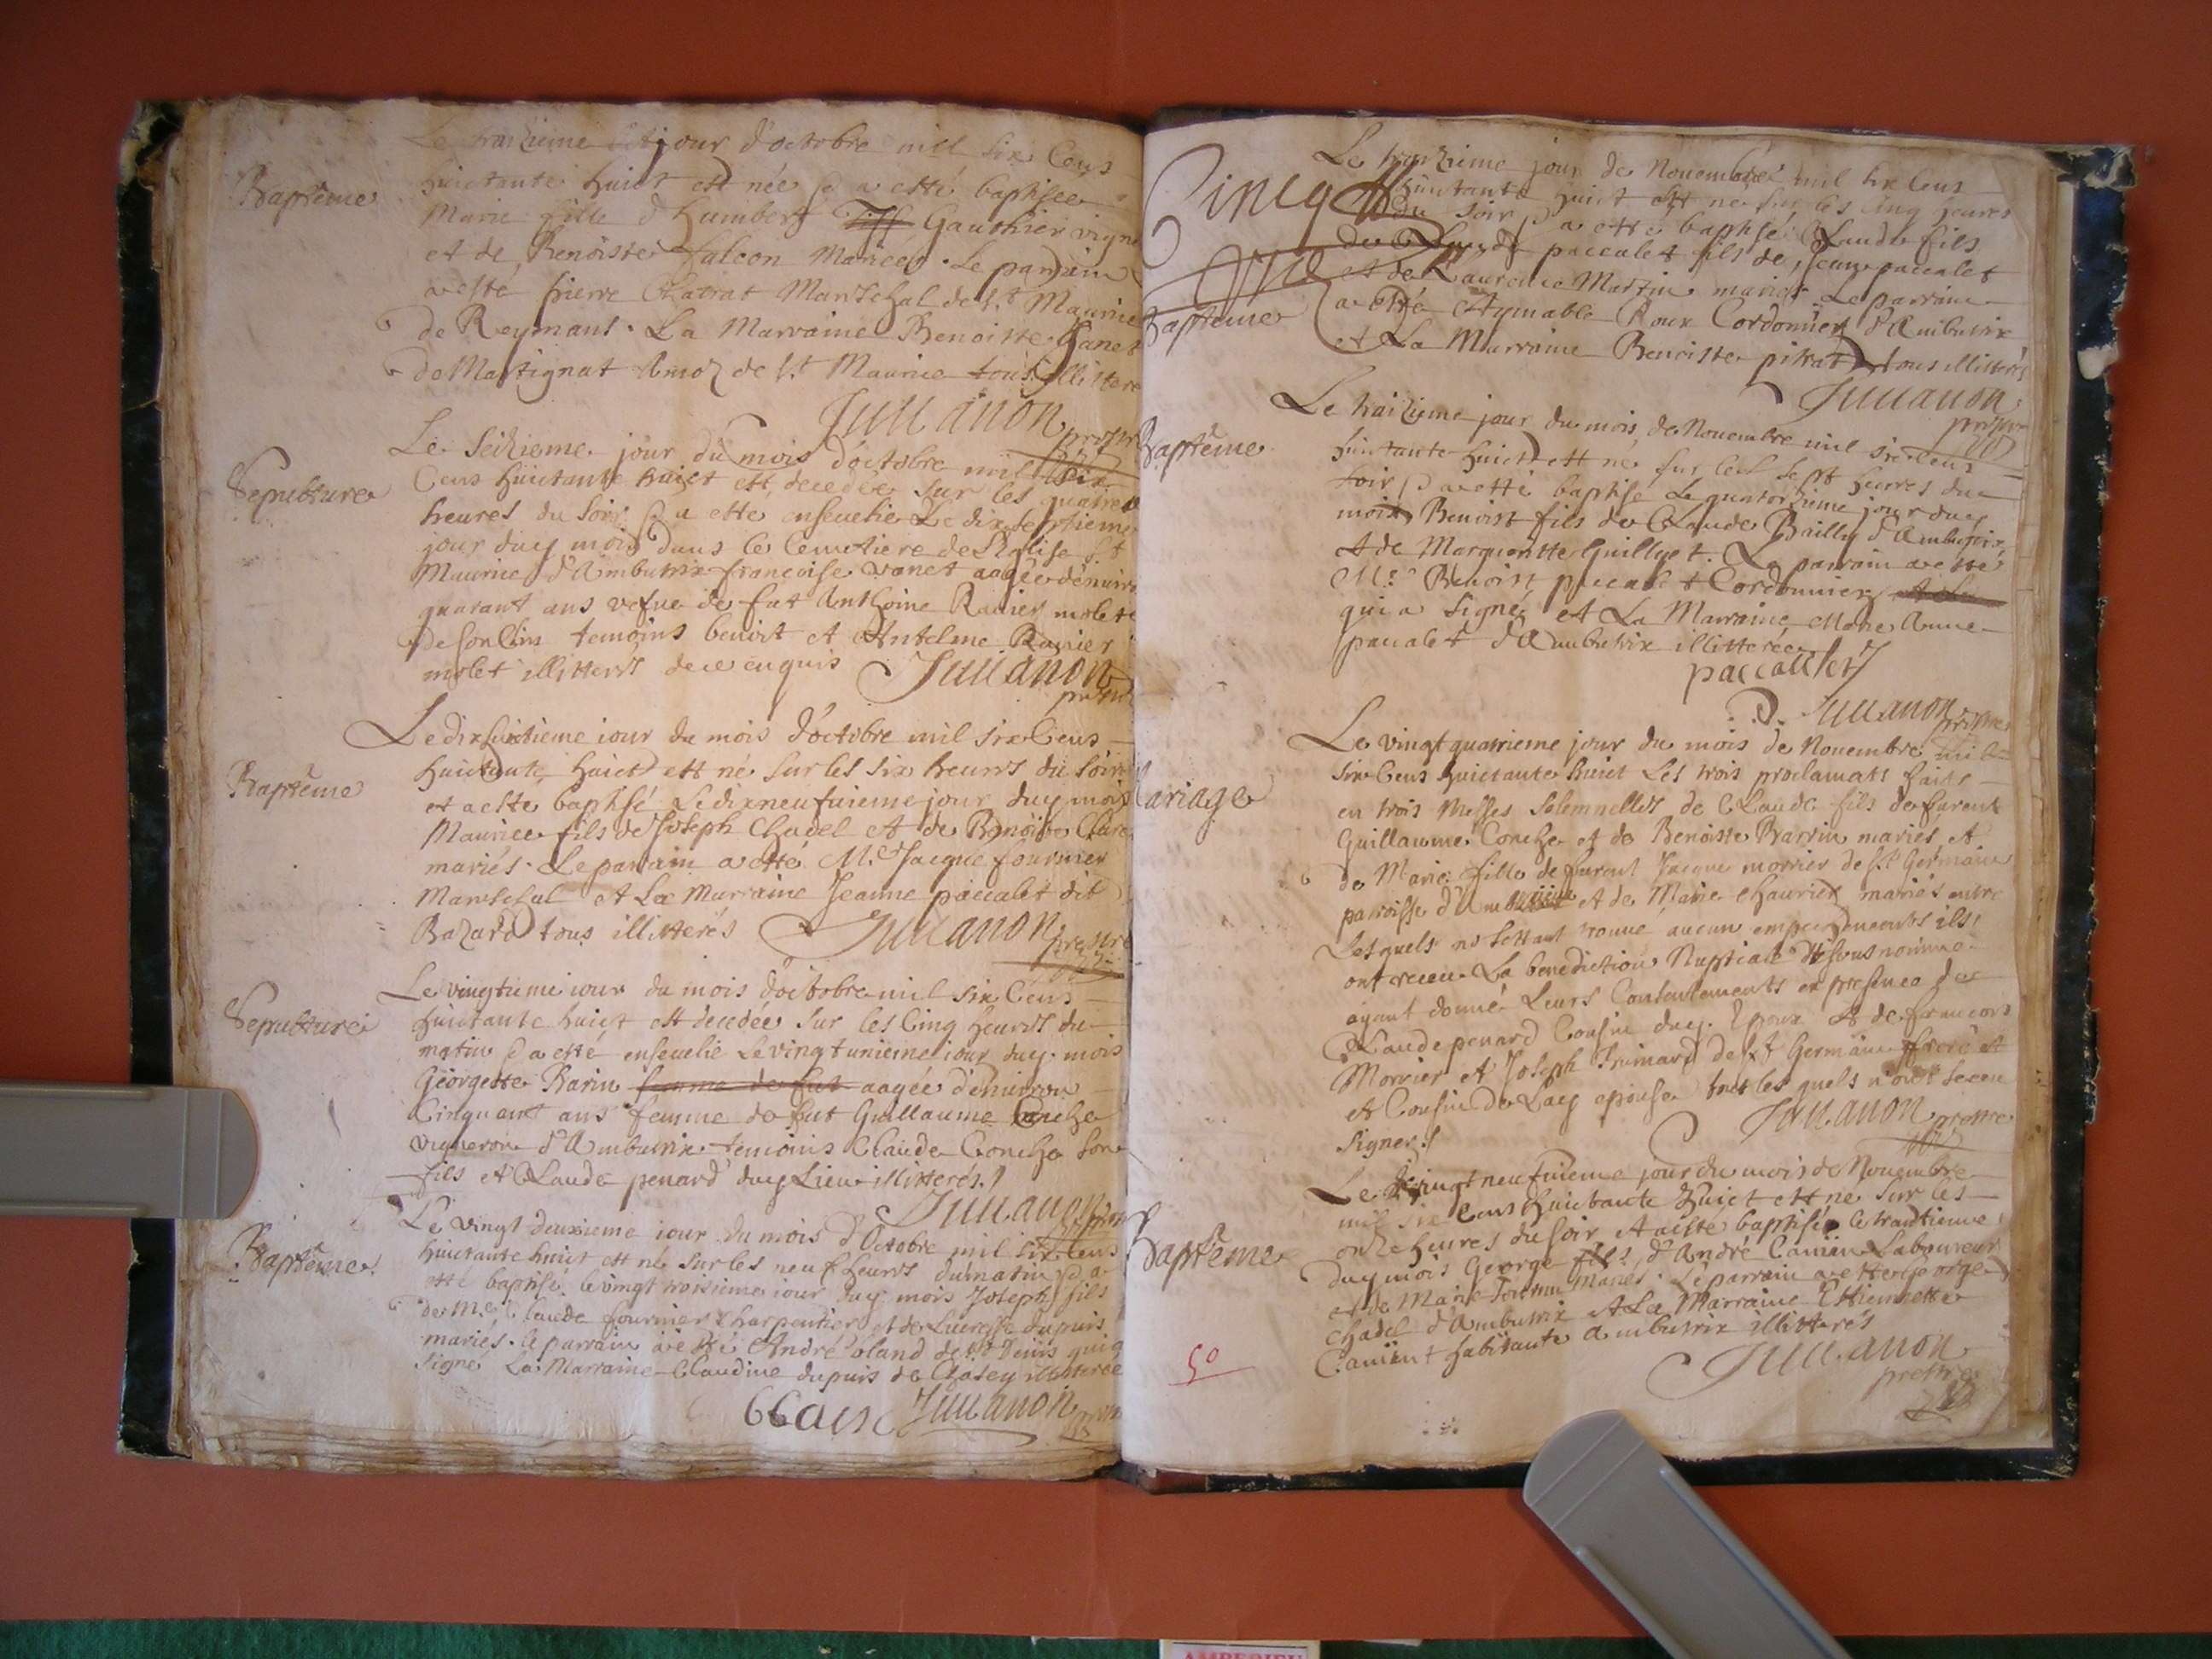 Baptême
Le traizieme jour d'octobre mil six Cens
huictante huict est née & a esté baptisée
Marie fille d'humbert Gauthier vign
et de Benoiste falcon Mariés. Le parrain
a esté pierre Chatrat Mareschal de St Maurice
de Reymans. La Marraine Benoitte Ganet
de Martignat de St Maurice tous illittere
Jullanon
Sepulture
Le Seizieme jour du mois d'octobre mil Six
Cens huictante huict est decedee sur les quatre
heures du soir & a esté ensevelie Le dix septieme
jour duy mois Dans Le Cemetiere de l'Eglise St
Maurice d'Ambutrix francoise vanet aagée d'enuiro
quarant ans vefve de fut Anthoine Ranier molet
de son Clin temoins benoit et Antelme Ranier
molet illitterés de ce enquis Jullanon
Baptême
Le dixhuictieme iour du mois d'octobre mil six Cens
huictante huict est né sur les six heures du soir
et a esté baptisé Le dix neufuieme jour duy mois
Maurice fils de Joseph Chadel et de Benoite Clare
mariés. Le parrain a esté Me Jacque fournier
Mareschal et La Marraine Jeanne paccalet dit
Bazard tous illitterés Jullanon prestre
Sepulture
Le vingtieme iour du mois d'octobre mil six Cens
huictante huict est decedée sur les Cinq heures du
matin & a esté ensevelie Le vingt unieme iour duy mois
Georgette Barin femme de fut aagée d'enuiron
Cinquant ans femme de fut Guillaume Conche
vigneron d'Ambutrix temoins Claude Conche son
fils et Claude penard duy Lieu illitterés
Jullanon
Baptême
Le vingt deuxieme iour du mois d'Octobre mil six Cens
huictante huict est né sur les neuf heures du matin & a
esté baptisé le vingt troisieme iour duy mois Joseph fils
de Me Claude fournier Charpentier et de Lucresse dupuis
mariés. Le parrain a esté André oland de St Denis qui a
signé La Marraine Claudine dupuis de Chasey illitterée
Jullanon
Cinq
Baptême
Le traizieme jour de Nouembre mil six Cens
huictante huict est né sur les cinq heures
du soir & a esté baptisé Claude fils
de Claude paccalet fils de Jean paccalet
et de Laurence Martin mariés. Le parrain
a esté Aymable Roux Cordonnier d'Ambutrix
et La Marraine Benoiste pitrat tous illitterés
Jullanon
prestre
Baptême
Le traizieme jour du mois de Nouembre mil six Cens
huictante huict est né sur les sept heures du
soir & a esté baptisé Le quatorzieme jour duy
mois Benoist fils de Claude Bailly d'Ambutrix
et de Marguerite Guillyet. Le parrain a esté
Me Benoist paccalet Cordonnier
qui a signé et La Marraine Marie Anne
paccalet d'Ambutrix illitterée
paccallet
Jullanon prestre
Mariage
Le vingt quatrieme jour du mois de Nouembre mil
six Cens huictante huict Les trois proclamats faits
en trois Messes solemnelles de Claude fils de furent
Guillaume Conche et de Benoiste Barrin mariés et
de Marie fille de furent Jacque morrier de St Germain
parroisse d'Amberieu et de Marie Chaurier mariés entre
Lesquels ne s'estant trouué aucun empechements ils
ont receu La benediction Nuptiale
ayant donné Leurs Consentements en presence de
Claude penard Cousin duy Epoux et de francois
Morrier et Joseph Trimard de St Germain frere et
et Cousin de Lay epouse tout les quels n'ont sceu
signer Jullanon prestre
Baptême
Le vingt neufuieme jour du mois de Nouembre
mil six Cens huictante huict est né sur les
onze heures du soir et a esté baptisé le trantieme
duy mois George fils d'André Camien Laboureur
et de Marie mariés. Le parrain a esté George
Chadel d'Ambutrix et La Marraine Ettiennette
Camient habitante Ambutrix illitterés
Jullanon
prestre
50